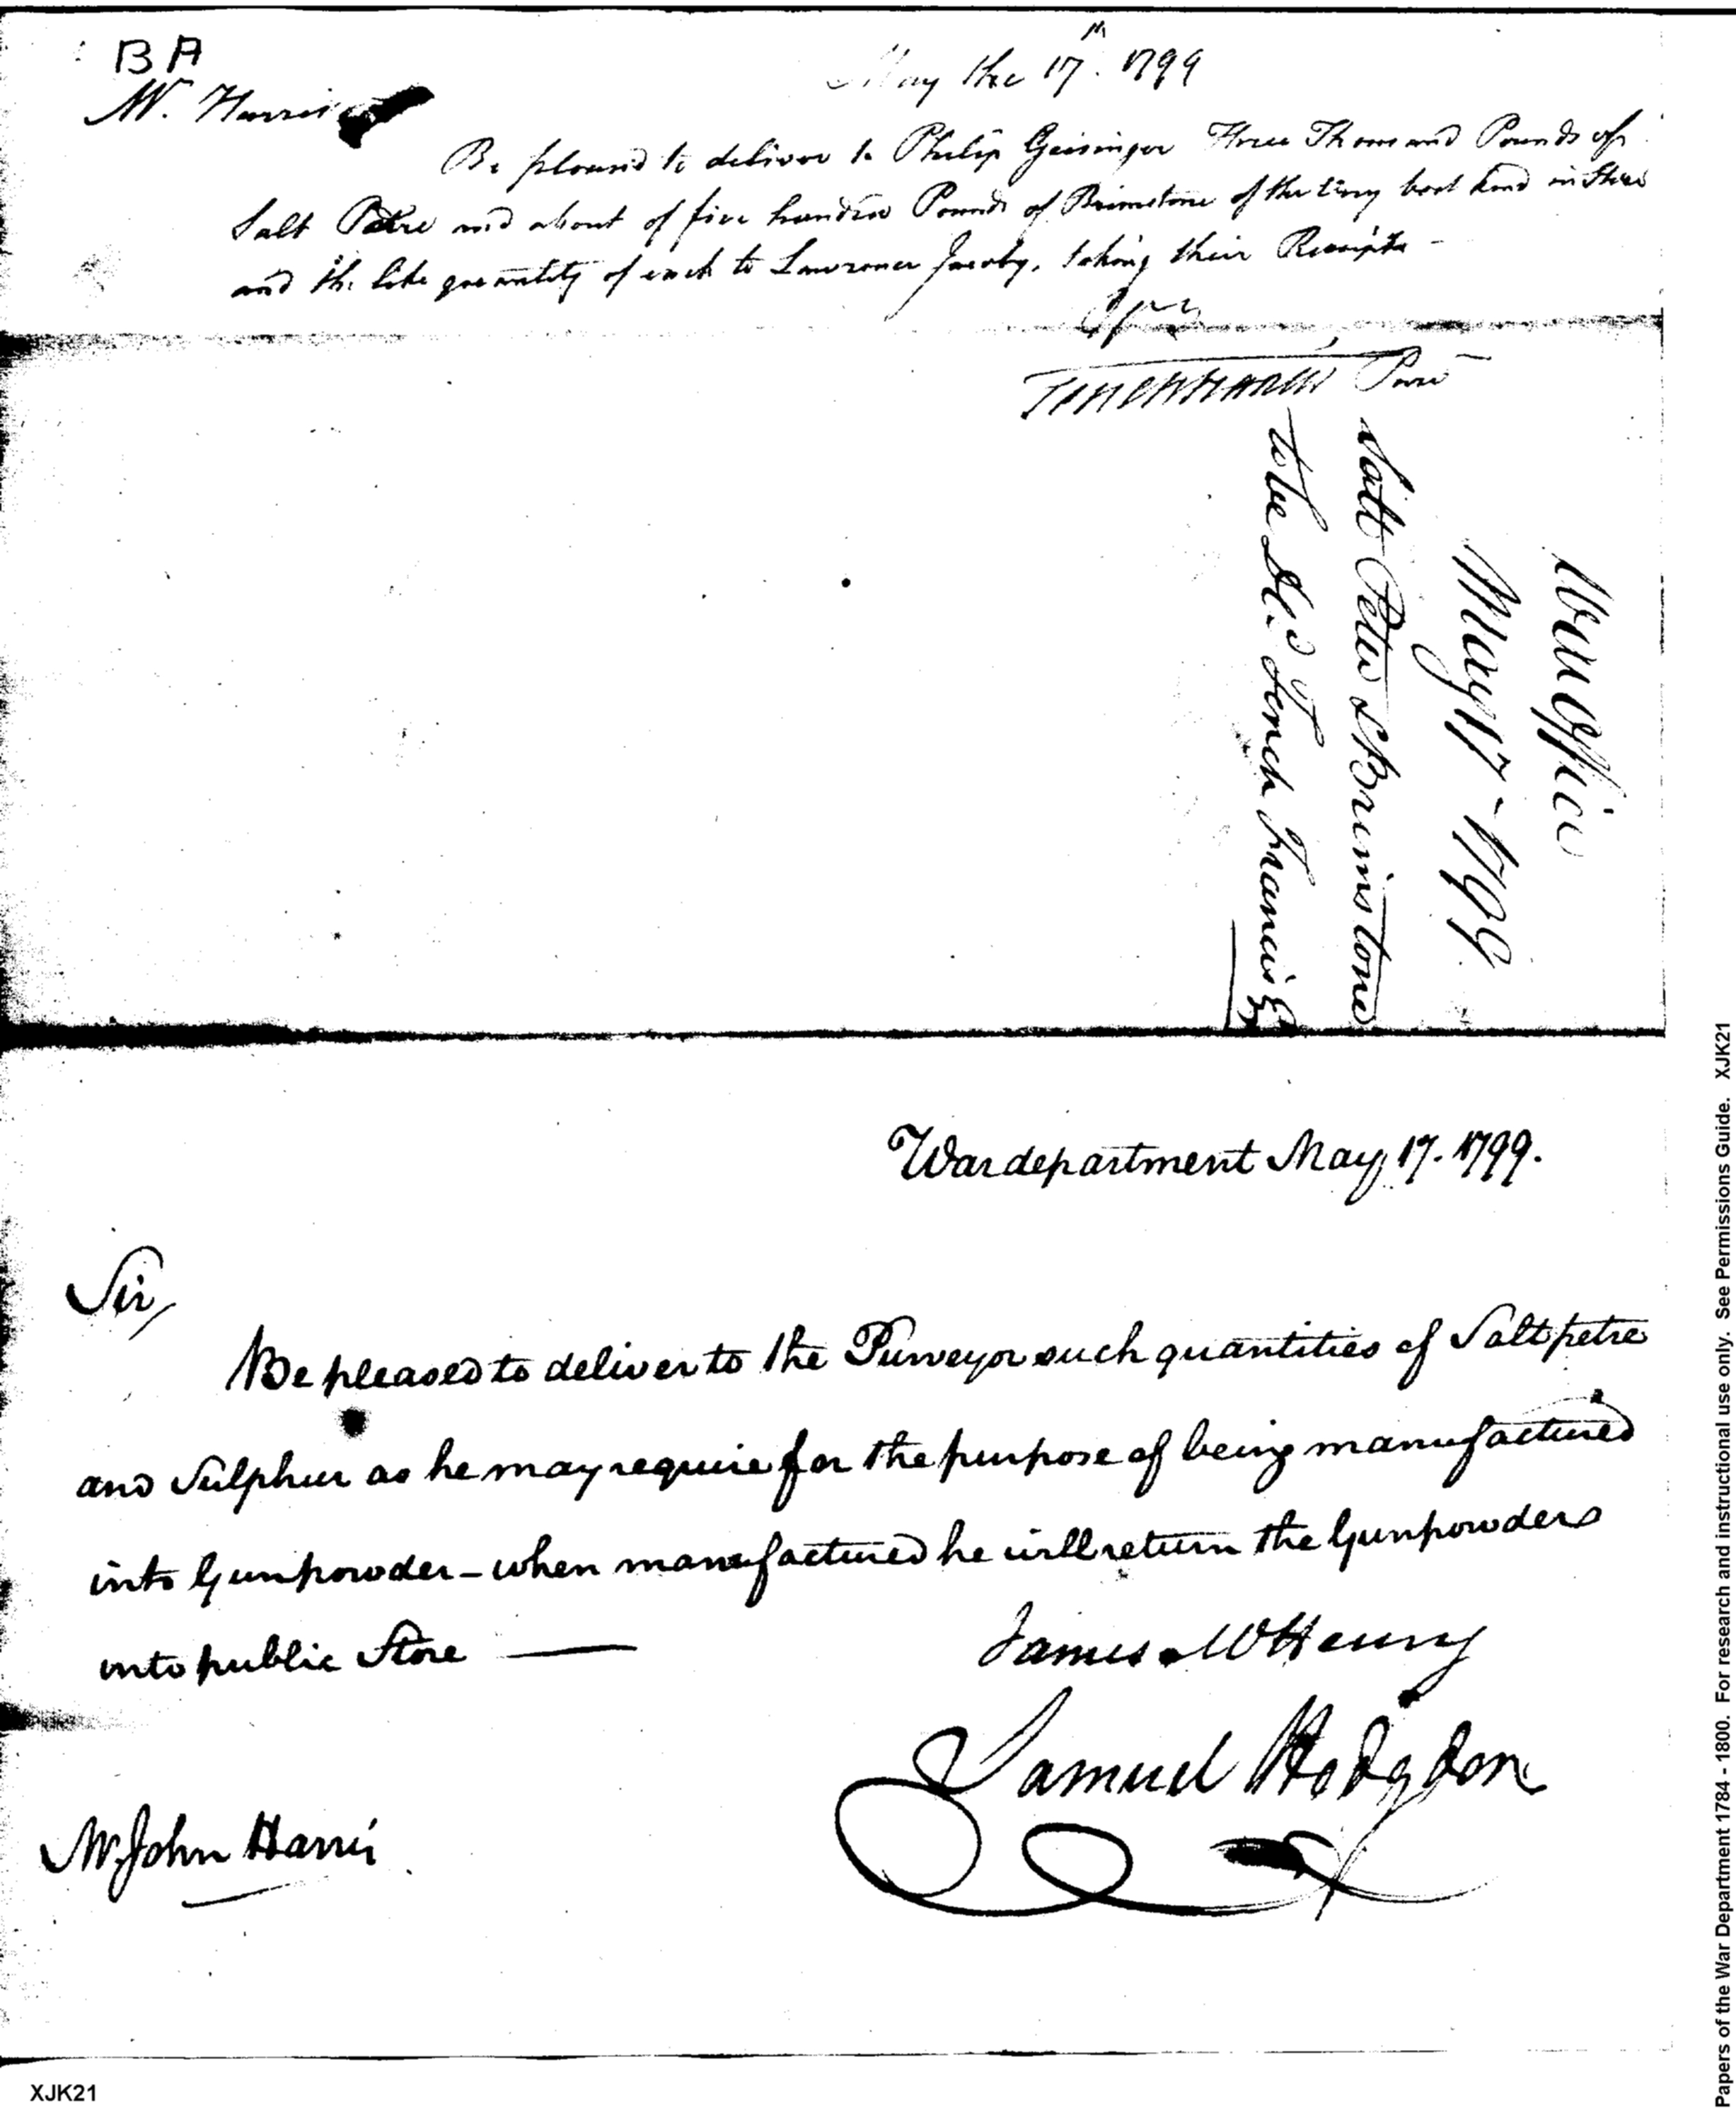 BA
May the 17th. 1799
Mr. Harris
Be pleased to deliver to Philip Geisinger Three Thousand Pounds of
Salt Petre and about of five hundred Pounds of Brimstone of the very best kind in Store
and the like quantity of each to Lawrence Jacoby, taking their Receipts -
Tench Francis Purv
War Office
May 17 - 1799
Salt Petre & Brimstone
to be deld Tench Francis Esq
War department May, 17. 1799.
Sir,
Be pleased to deliver to the Purveyor such quantities of Saltpetre
and Sulphur as he may require for the purpose of being manufactured
into Gunpowder - when manufactured he will return the Gunpowder
into public Store —
James McHenry
Samuel Hodgdon
Mr. John Harris
XJK21
Papers of the War Department 1784 - 1800. For research and instructional use only. See Permissions Guide. XJK21